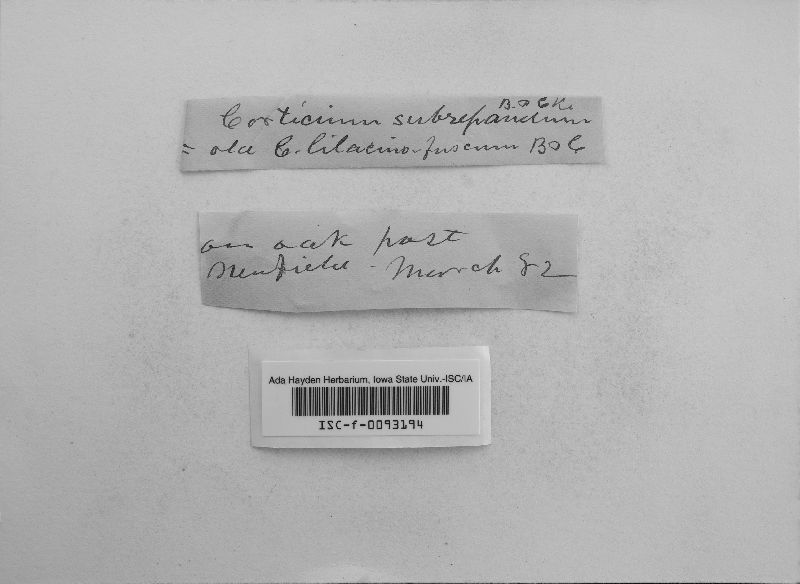 Corticium subrepandum B. & Cke.
= old C. lilacino-fuscum B & C
on oak post
Newfield - March 82
Ada Hayden Herbarium, Iowa State Univ.-ISC/IA
ISC-f-0093194